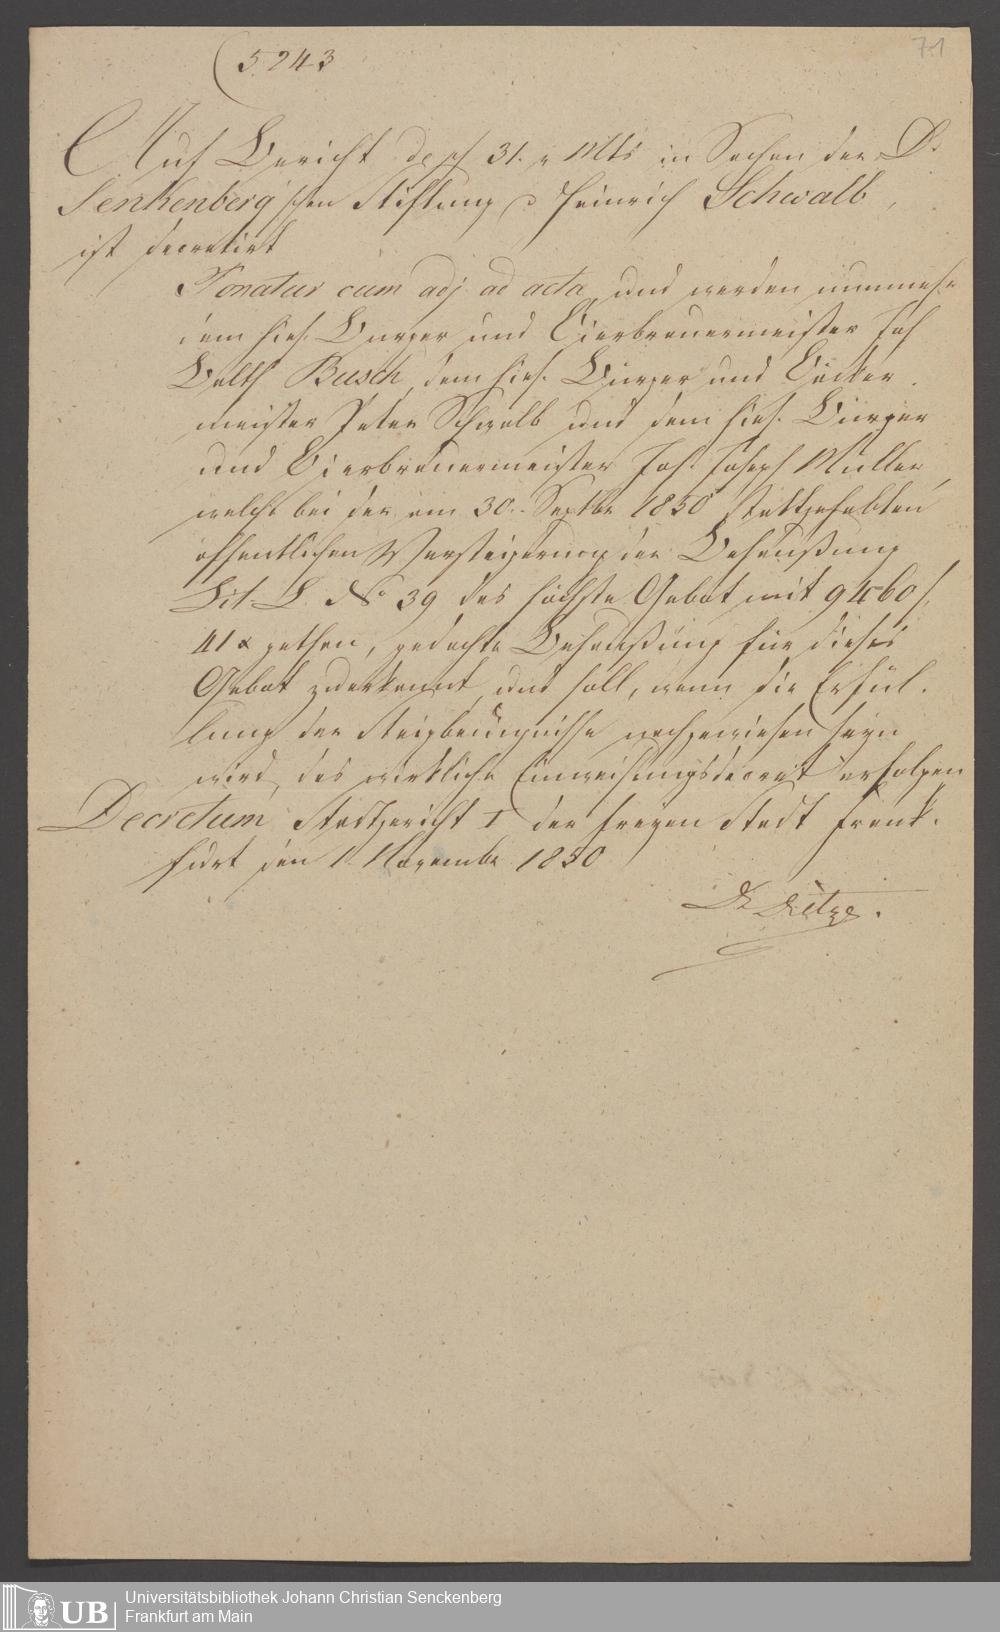 5243
71
Auf Bericht de ps 31. v Mts in Sachen der Dr.
Senkenberg'schen Stiftung c Heinrich Schwalb,
ist decretirt
Ponatur cum adj ad acta, und werden nunmehr
dem hies. Burger und Bierbrauermeister Joh
Balth Busch, dem hies. Bürger und Bäcker
meister Peter Schwalb und dem hies. Bürger
und Bierbrauermeister Joh. Joseph Müller,
welche bei der am 30. Septbr 1850 stattgehabten
öffentlichen Versteigerung der Behaußung
Lit. L. No 39 das höchste Gebot mit 9460 f.
41 x gethan, gedachte Behaußung für dieses
Gebot zuerkannt, und soll, wenn die Erfül-
lung der Steigbedingnisse nachgewiesen seyn
wird, das wirkliche Einweisungsdecret erfolgen
Decretum Stadtgericht I der freyen Stadt Frank-
furt den 1 Novembr 1850
Universitätsbibliothek Johann Christian Senckenberg
Frankfurt am Main
UB